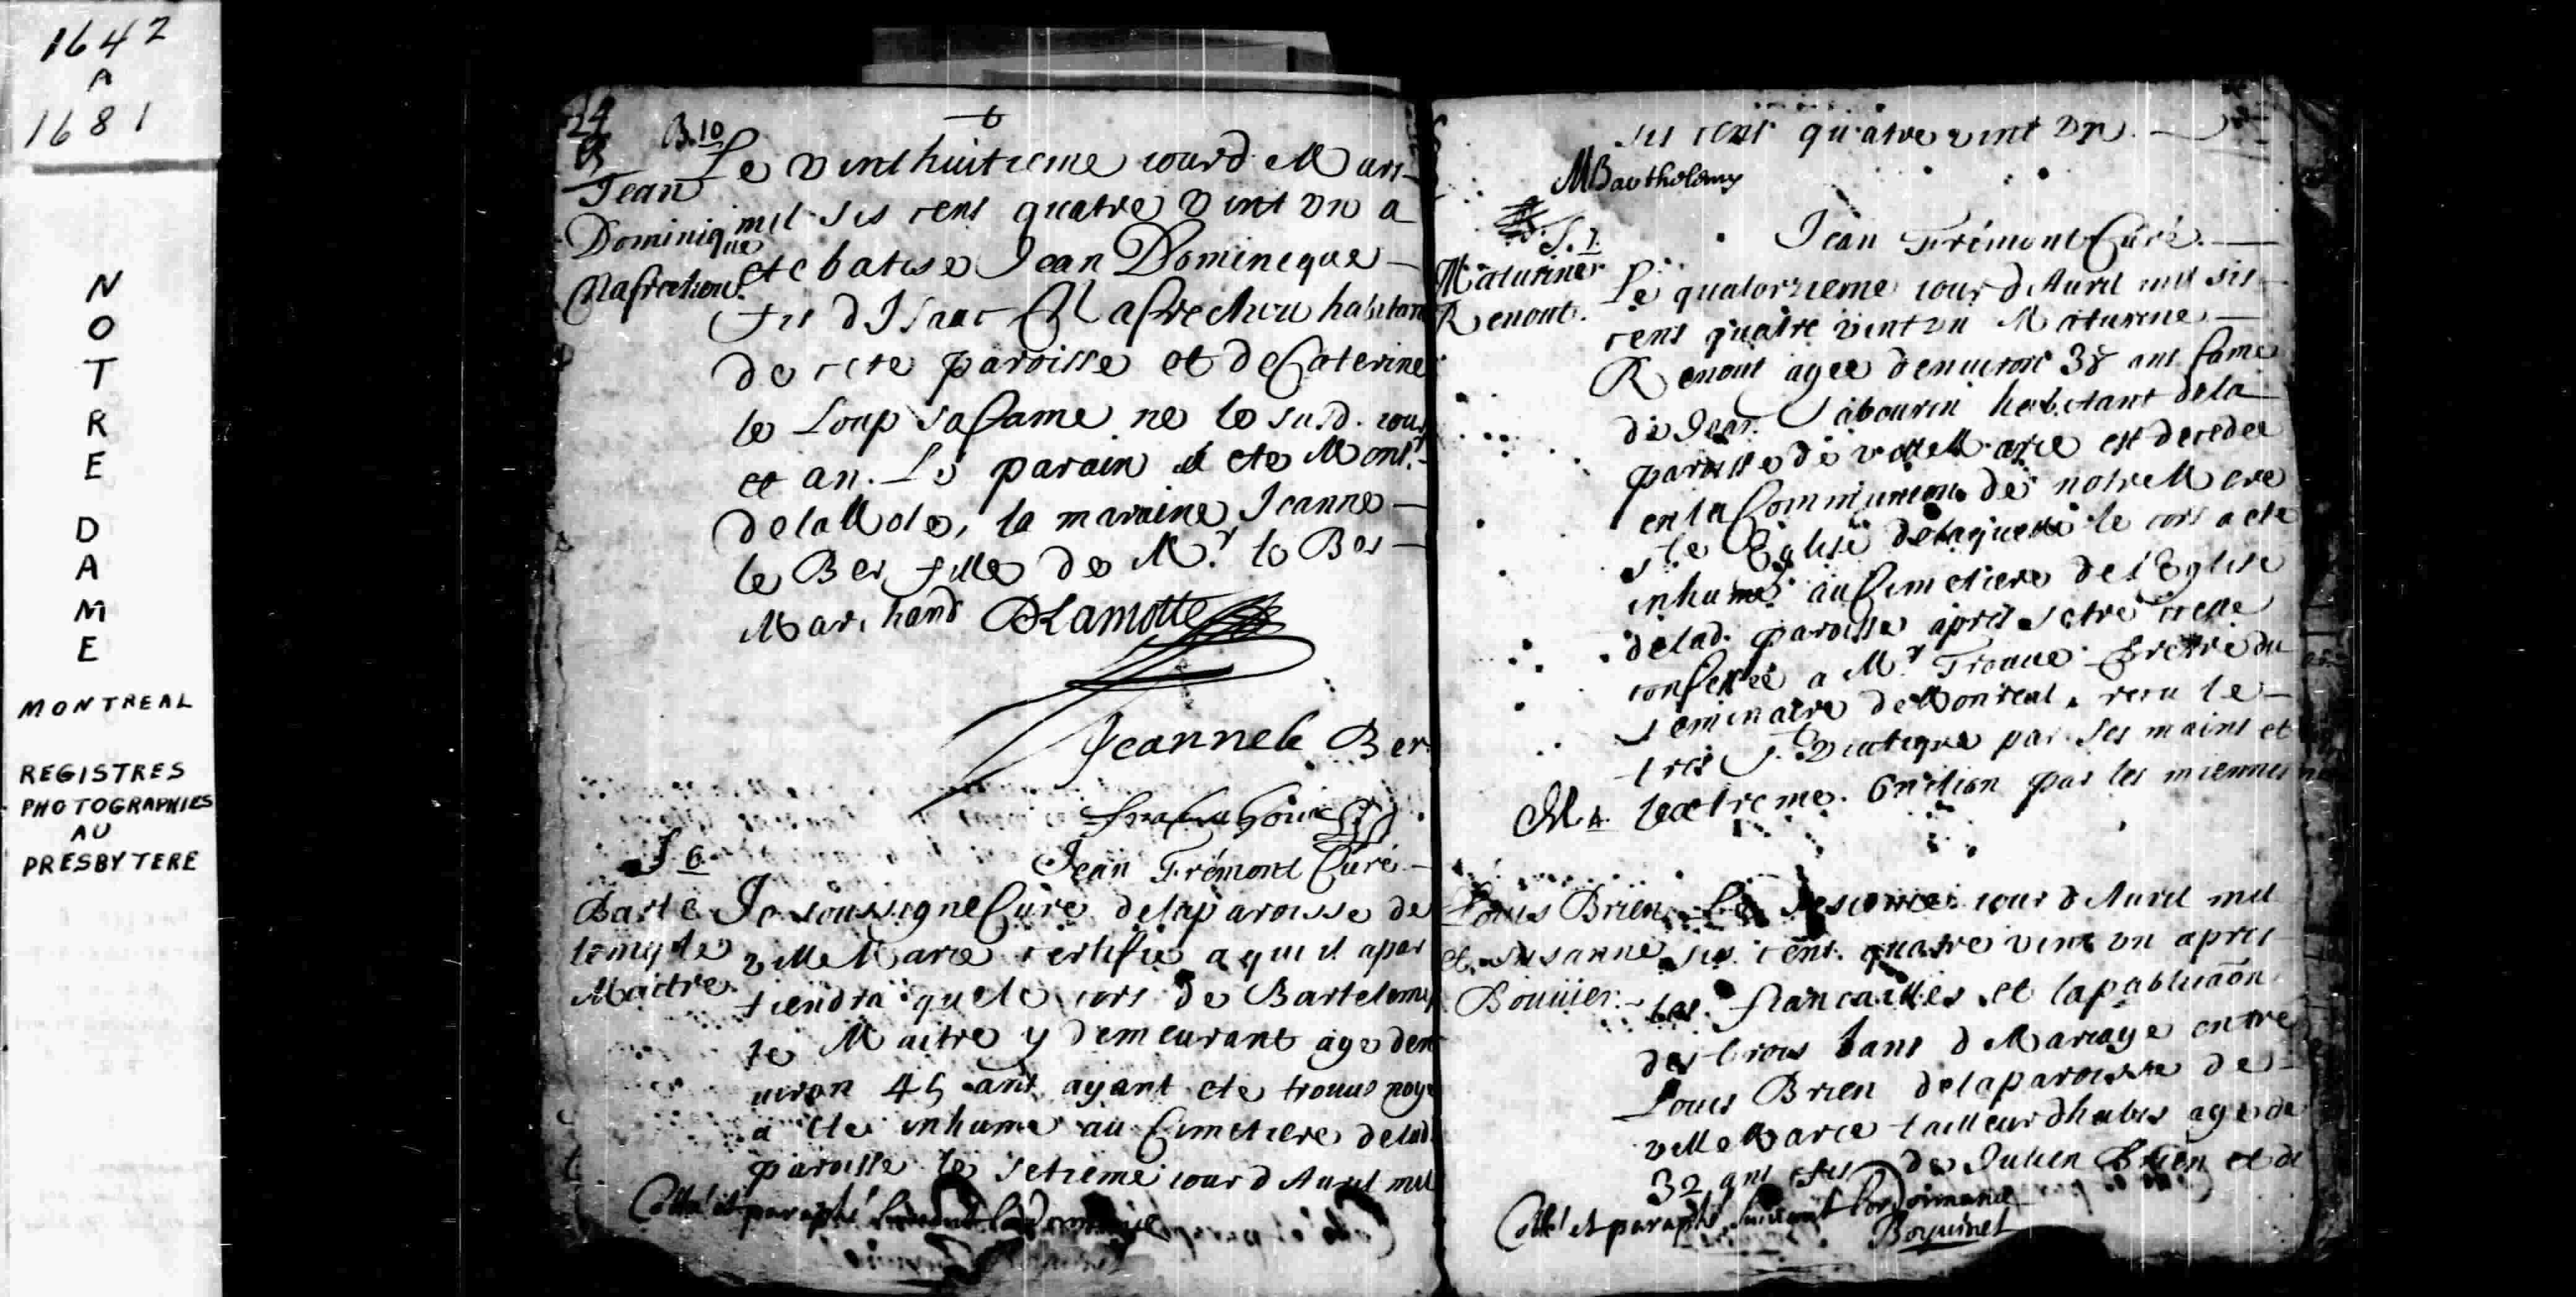 1642
A
1681
NOTRE DAME
MONTREAL
REGISTRES
PHOTOGRAPHIES
AU
PRESBYTERE
24
6
B. 10
Jean
Dominique
Nafrechou
Le vint huitieme iour de Mars
mil sis cens quatre vint vn a
ete batise Jean Domineque
fis d Isaac Nafrechou habitan
de cete paroisse et de Caterine
le Loup sa fame ne le susd. iour
et an. Le parain a ete Monsr.
de la Mote, la maraine Jeanne
le Ber fille de Mr. le Ber
Marchand DLamotte
Jeanne le Ber
Jean Frémont Curé
S 6
Barte
lemy le
Maitre
Je soussigne Curé de la paroisse de
ville Marie certifie a qui il apar
tiendra que le cors de Bartelemy
le Maitre y demeurant age den
uiron 45 ans ayant ete trouué noye
a ete inhumé au Cimetiere de lad.
paroisse le setieme iour d Auril mil
Cotté et paraphé suivant l'ordonnance
sis cens quatre vint vn.
M Bartholomy
Jean Frémont Curé.
S. 7.
Maturine
Renout.
Le quatorzieme iour d Auril mil sis
cens quatre vint vn Maturine
Renout agee denuiron 38 ans fame
de Jean Sabourin habitant de la
paroisse de ville Marie est decedee
en la Communion de notre Mere
ste Eglise de laquelle le cors a ete
inhumé au Cimetiere de l'Eglise
de lad. paroisse apres s etre
confessée a Mr Trouué Pretre du
seminaire de Monreal, receu le
tres St. Viatique par ses mains et
lextreme. Onction par les miennes
M 4.
Louis Brien
et Susanne
Bouuier.
Le iour d Auril mil
sis cens quatre vint vn apres
les fiancailles et la publicaõn
des trois bans d Mariage entre
Louis Brien de la paroisse de
ville Marie tailleur dhabis age de
32 ans fis de Julien Brien et de
Cotté et paraphé suivant l'ordonnance
Boyuinet